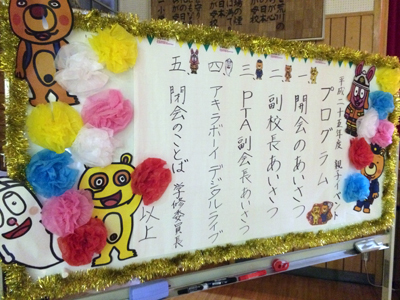 平成二十五年度 親子イベント
プログラム
一 開会のあいさつ
二 副校長あいさつ
三 PTA副会長あいさつ
四 アキラボーイ デジタルライブ
五 閉会のことば 学修委員長
以上